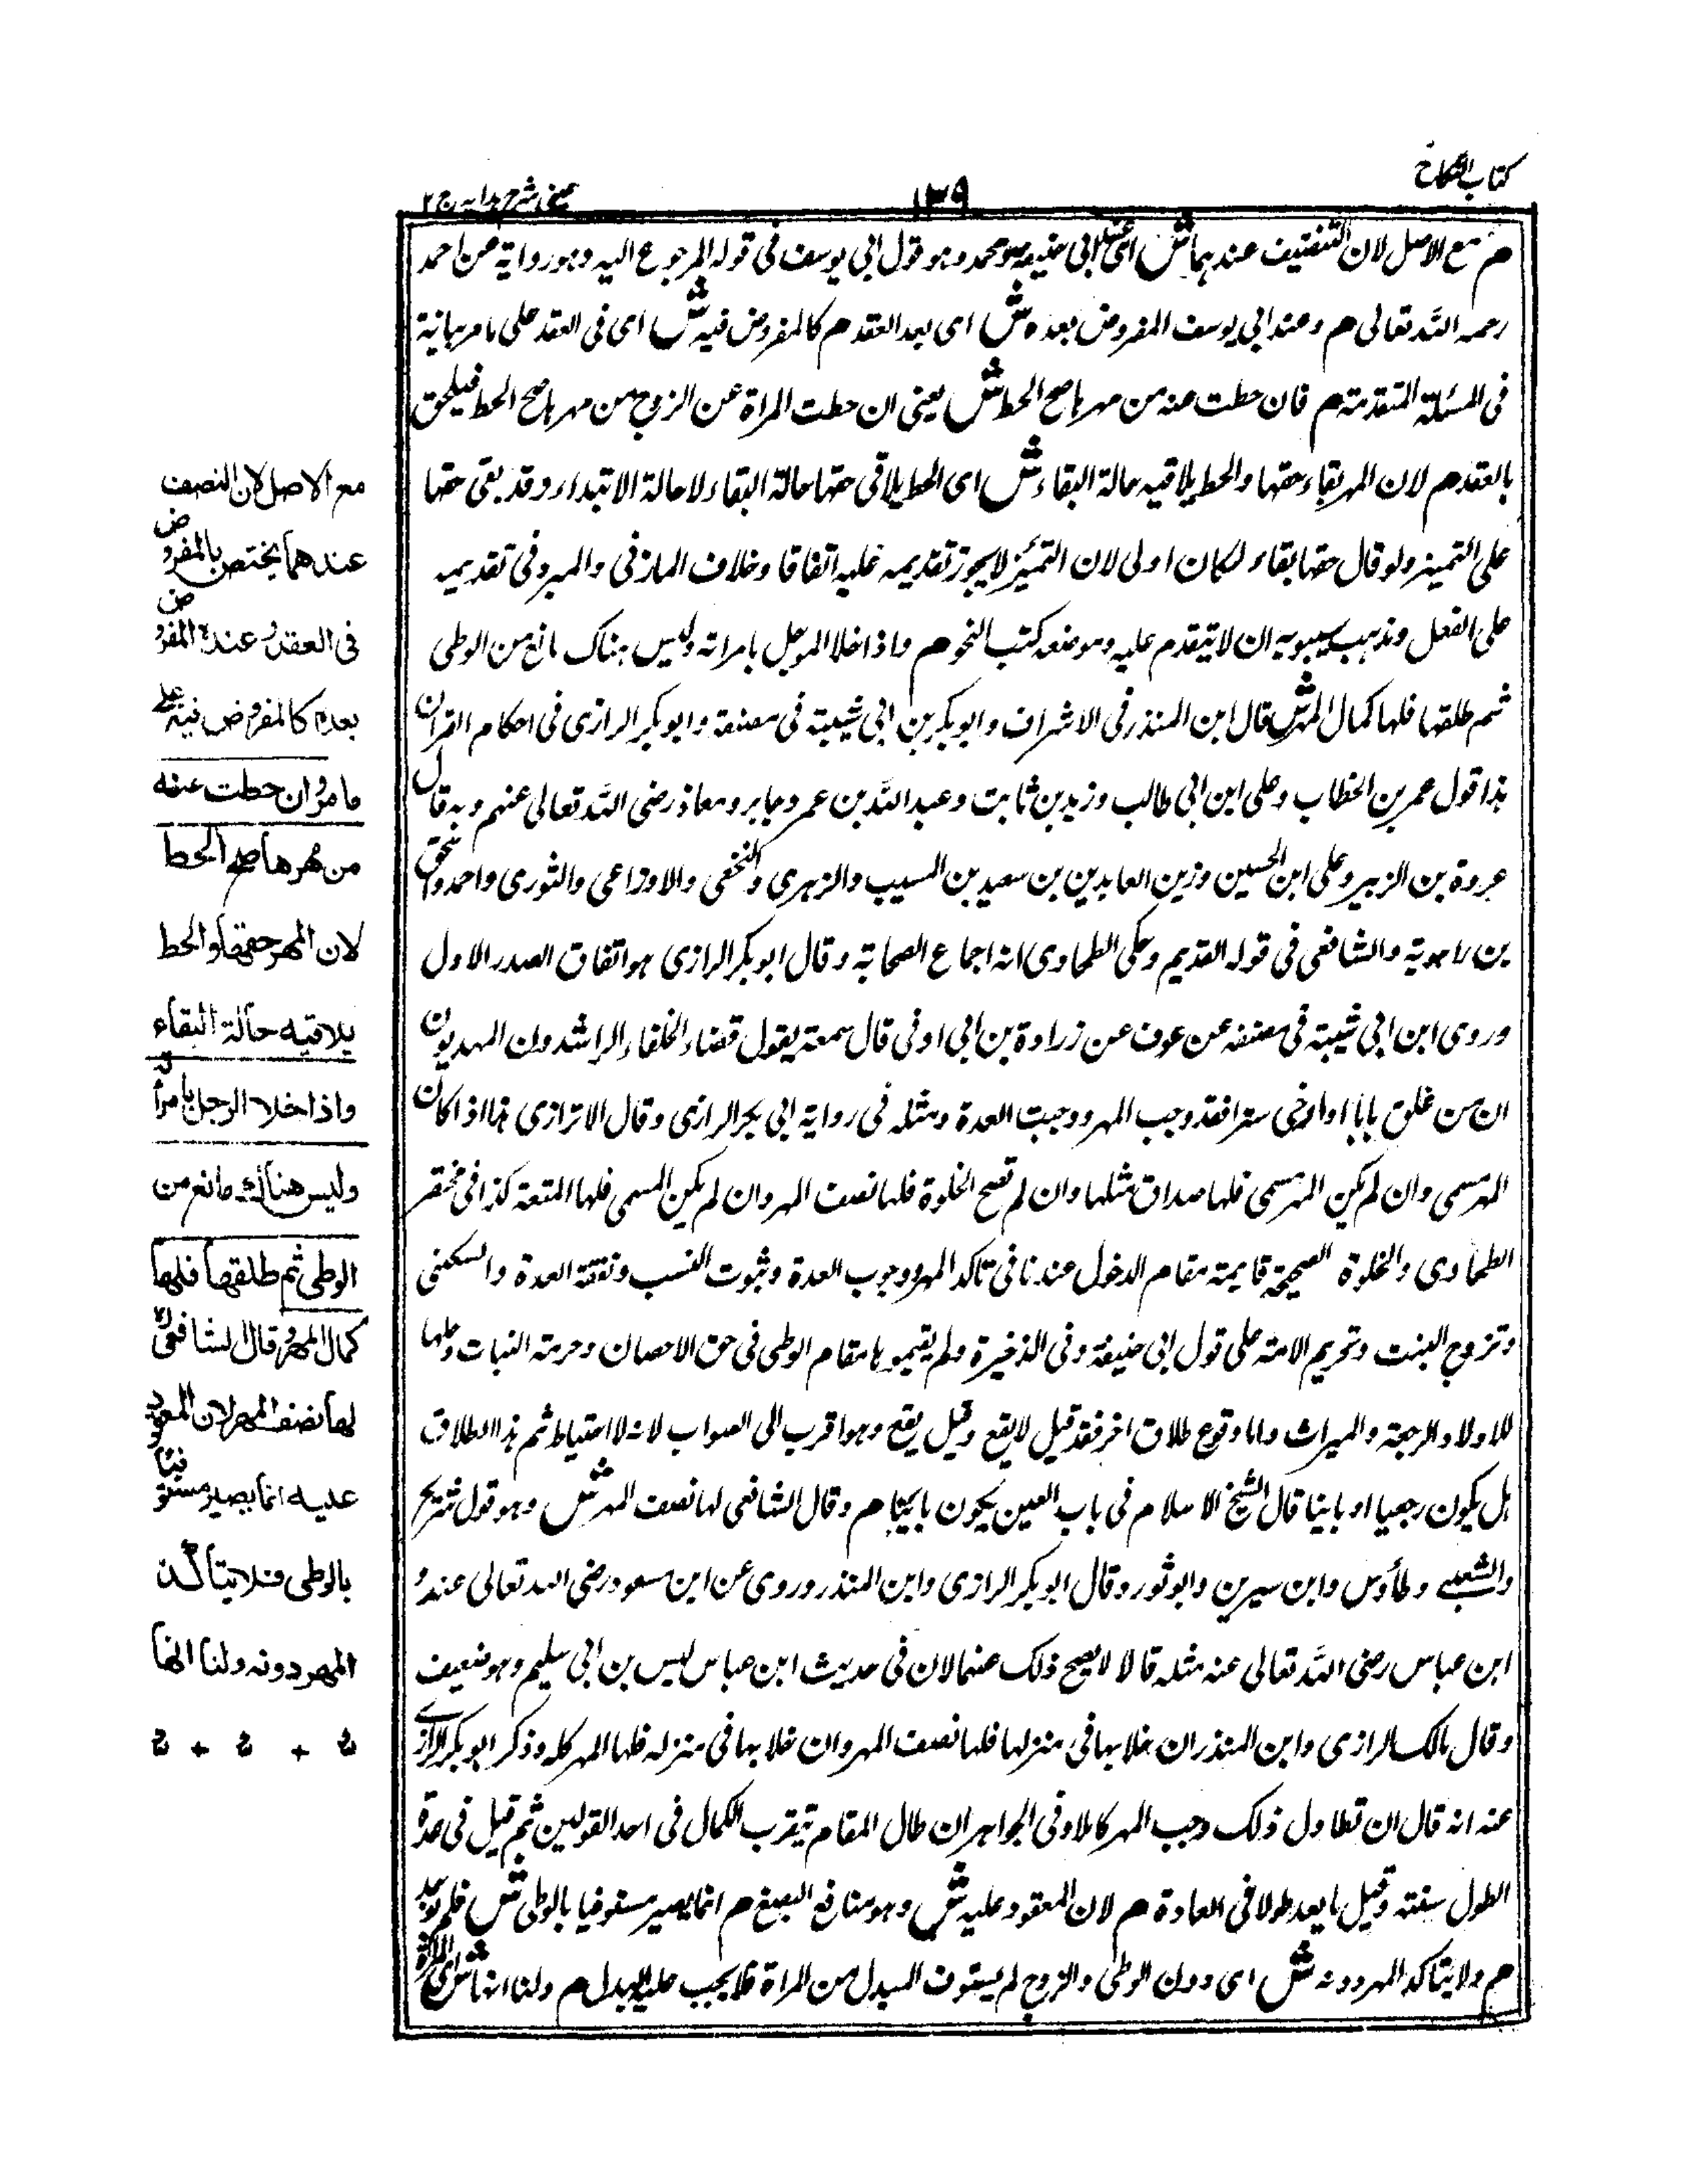 كتاب النكاح
١٣٩
عينى شرح هدايه ج ٢
م مع الاصل لان التنصيف عندهما ش اى عند ابى حنيفة ومحمد وهو قول ابى يوسف فى قوله المرجوع اليه وهو رواية عن احمد
رحمه الله تعالى م وعند ابى يوسف المفروض بعده ش اى بعد العقد م كالمفروض فيه ش اى فى العقد على ما مر بيانه
فى المسئلة المتقدمة م فان حطت عنه من مهرها صح الحط ش يعنى ان حطت المراة عن الزوج من مهرها صح الحط فيلحق
بالعقد م لان المهر بقاء حقها والحط يلاقيه حالة البقاء ش اى الحط يلاقى حقها حالة البقاء لا حالة الابتداء وقد بقى حقها
على التميز ولو قال حقها بقاء لكان اولى لان التمييز لا يجوز تقديمه عليه اتفاقا وخلاف المازنى والمبرد فى تقديمه
على الفعل ومذهب سيبويه ان لا يتقدم عليه وموضعه كتب النحو م واذا خلا الرجل بامراته وليس هناك مانع من الوطى
ثم طلقها فلها كمال المهر ش قال ابن المنذر فى الاشراف وابو بكر بن ابى شيبة فى مصنفه وابو بكر الرازى فى احكام القران
هذا قول عمر بن الخطاب وعلى ابن ابى طالب وزيد بن ثابت وعبد الله بن عمر وجابر ومعاذ رضى الله تعالى عنهم وبه قال
عروة بن الزبير وعلى ابن الحسين وزين العابدين بن سعيد بن المسيب والزهرى والنخعى والاوزاعى والثورى واحمد واسحق
بن راهويه والشافعى فى قوله القديم وحكى الطحاوى انه اجماع الصحابة وقال ابو بكر الرازى هو اتفاق الصدر الاول
وروى ابن ابى شيبة فى مصنفه عن عوف عن زرارة بن ابى اوفى قال سمعته يقول قضاء الخلفاء الراشدون المهديون
ان من غلق بابا او ارخى سترا فقد وجب المهر ووجبت العدة ومثله فى رواية ابى بكر الرازى وقال الاترازى هذا اذا كان
المهر مسمى وان لم يكن المهر مسمى فلها صداق مثلها وان لم تصح الخلوة فلها نصف المهر وان لم يكن المسمى فلها المتعة كذا فى مختصر
الطحاوى والخلوة الصحيحة قايمة مقام الدخول عندنا فى تاكد المهر ووجوب العدة وثبوت النسب ونفقة العدة والسكنى
وتزوج البنت وتحريم الامة على قول ابى حنيفة وفى الذخيرة ولم يقيموها مقام الوطى فى حق الاحصان وحرمة البنات وحلها
للاول والرجعة والميراث واما وقوع طلاق اخر فقد قيل لا يقع وقيل يقع وهو اقرب الى الصواب لانه لا احتياط ثم هذا الطلاق
هل يكون رجعيا او باينا قال الشيخ الاسلام فى باب العين يكون باينا م وقال الشافعى لها نصف المهر ش وهو قول شريح
والشعبى وطاؤس وابن سيرين وابو ثور وقال ابو بكر الرازى وابن المنذر وروى عن ابن مسعود رضى الله تعالى عنه و
ابن عباس رضى الله تعالى عنه مثله قالا لا يصح ذلك عنهما لان فى حديث ابن عباس ليس بن ابى سليم وهو ضعيف
وقال مالك الرازى وابن المنذر ان خلا بها فى منزلها فلها نصف المهر وان خلا بها فى منزله فلها المهر كله وذكر ابو بكر الرازى
عنه انه قال ان تطاول ذلك وجب المهر كاملا وفى الجواهر ان طال المقام يتقرب الكمال فى احد القولين ثم قيل فى حدة
الطول سنته وقيل ما يعد طولا فى العادة م لان المعقود عليه ش وهو منافع البضع م انما يصير مستوفيا بالوطى ش فلم يوجد
م ولا يتاكد المهر دونه ش اى دون الوطى والزوج لم يستوف المبدل من المراة فلا يجب عليه البدل م ولنا انها ش اى المراة
مع الاصل لان النصف
عندهما يختص بالمفروض
فى العقد وعنده المفروض
بعده كالمفروض فيه على
ما مر وان حطت عنه
من مهرها صح الحط
لان المهر حقها والحط
يلاقيه حالة البقاء
واذا خلا الرجل بامرأته
وليس هناك مانع من
الوطى ثم طلقها فلها
كمال المهر وقال الشافعى
لها نصف المهر لان المعقود
عليه انما يصير مستوفيا
بالوطى فلا يتأكد
المهر دونه ولنا انها